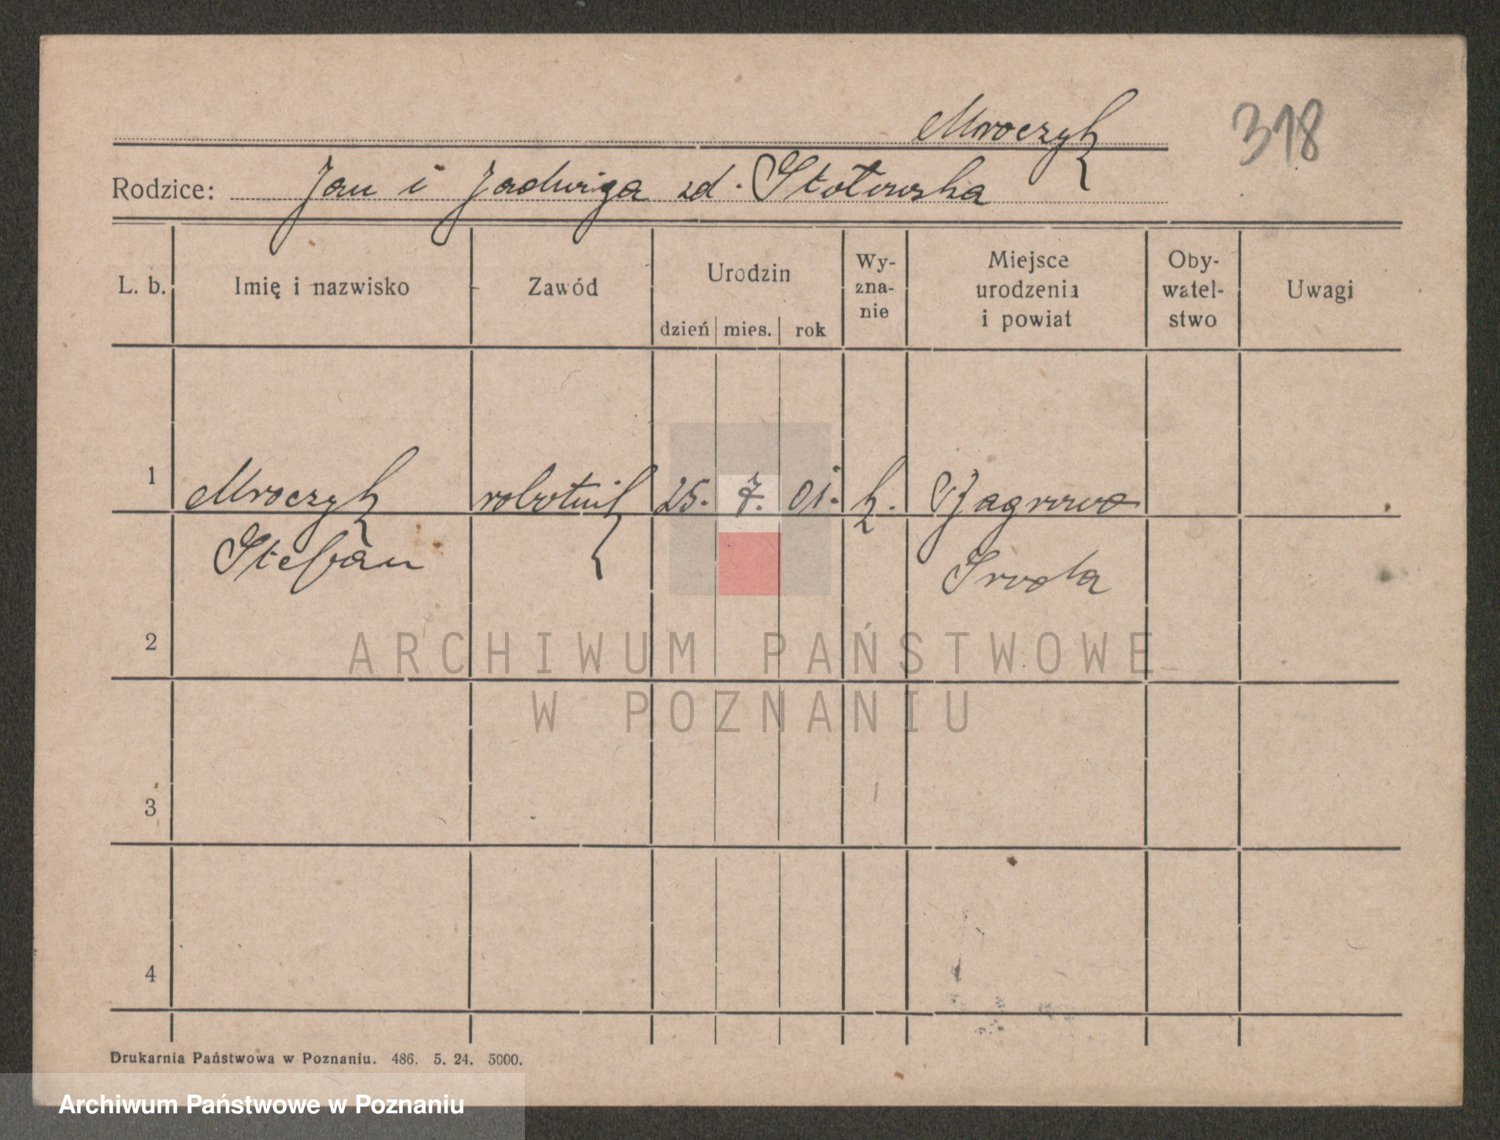 Mroczyk
318
Rodzice: Jan i Jadwiga zd. Stotowska
L. b. Imię i nazwisko Zawód Urodzin dzień mies. rok Wy-zna-nie Miejsce urodzenia i powiat Oby-watel-stwo Uwagi
1 Mroczyk robotnik 25. 7. 01. k.
Stefan Środa
2
ARCHIWUM PAŃSTWOWE
W POZNANIU
3
4
Drukarnia Państwowa w Poznaniu. 486. 5. 24. 5000.
Archiwum Państwowe w Poznaniu